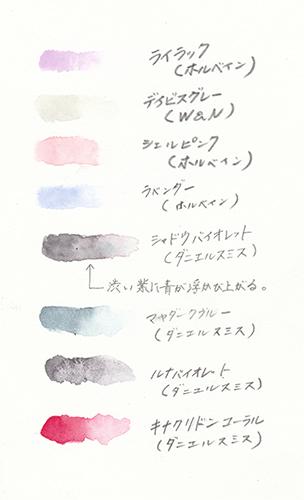 ライラック
(ホルベイン)
デイビスグレー
(W&N)
シェルピンク
(ホルベイン)
ラベンダー
(ホルベイン)
シャドウバイオレット
(ダニエルスミス)
渋い紫に青が浮かび上がる。
マヤダークブルー
(ダニエルスミス)
ルナバイオレット
(ダニエルスミス)
キナクリドンコーラル
(ダニエルスミス)